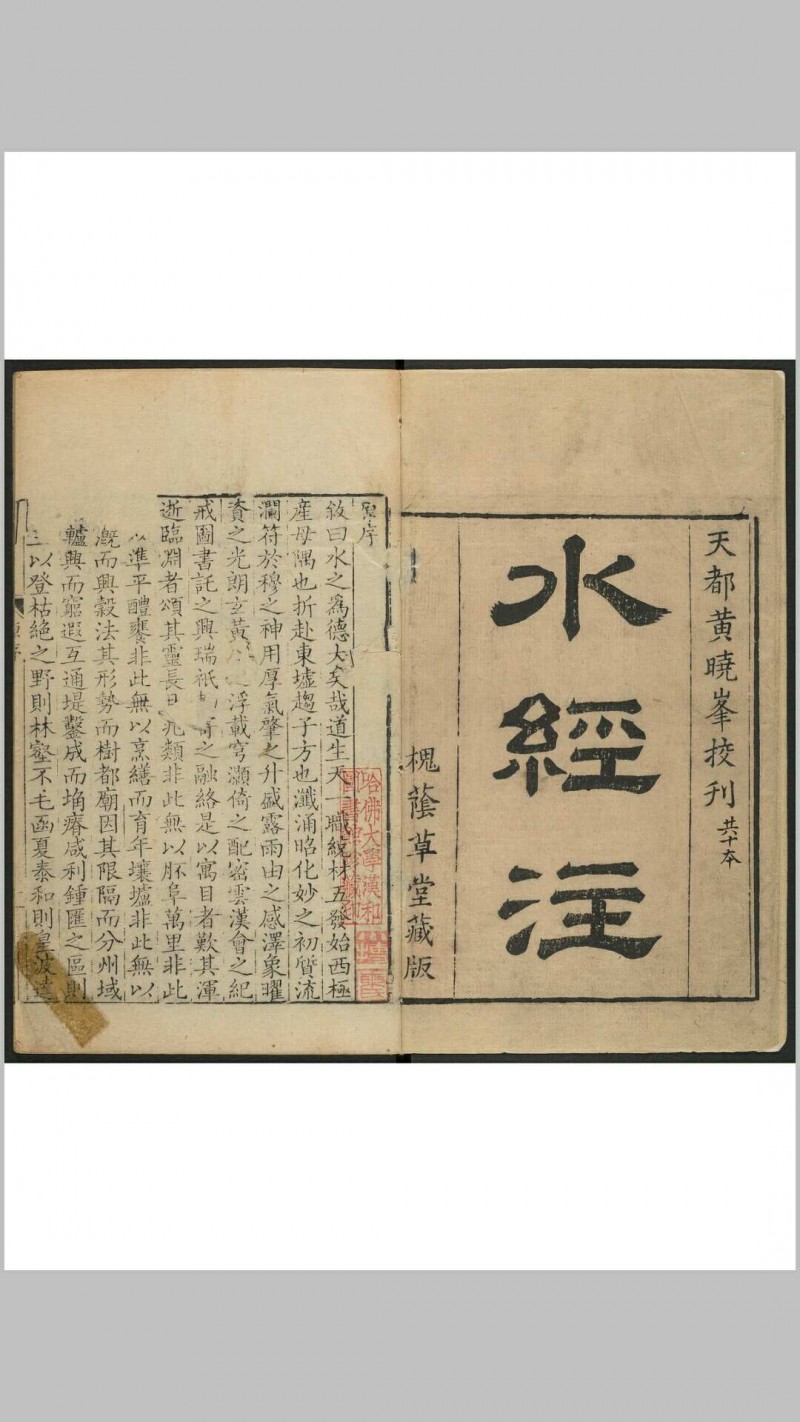 天都黄曉峯挍刊 共十本
水經注
槐蔭草堂藏版
序
敘曰水之為德大矣哉道生天一職統材五發始西極
産母隅也折赴東墟趨子方也瀸涌昭化妙之初質流
瀾符於穆之神用厚氣肇之升盛露雨由之感澤象曜
資之光朗玄黃之浮載穹瀬倚之配密雲漢會之紀
戒圖書託之興瑞祇之融絡是以寓目者歎其渾
逝臨淵者頌其靈長日九類非此無以胚阜萬里非此
以準平醴饔非此無以烹繕而育年壤墟非此無以
漑而興穀法其形勢而樹都廟因其限隔而分州域
轤興而窮遐互通堤鑿成而埆瘠咸利鍾匯之區則
以登枯絶之野則林壑不毛函夏泰和則皇波
哈佛大學漢和